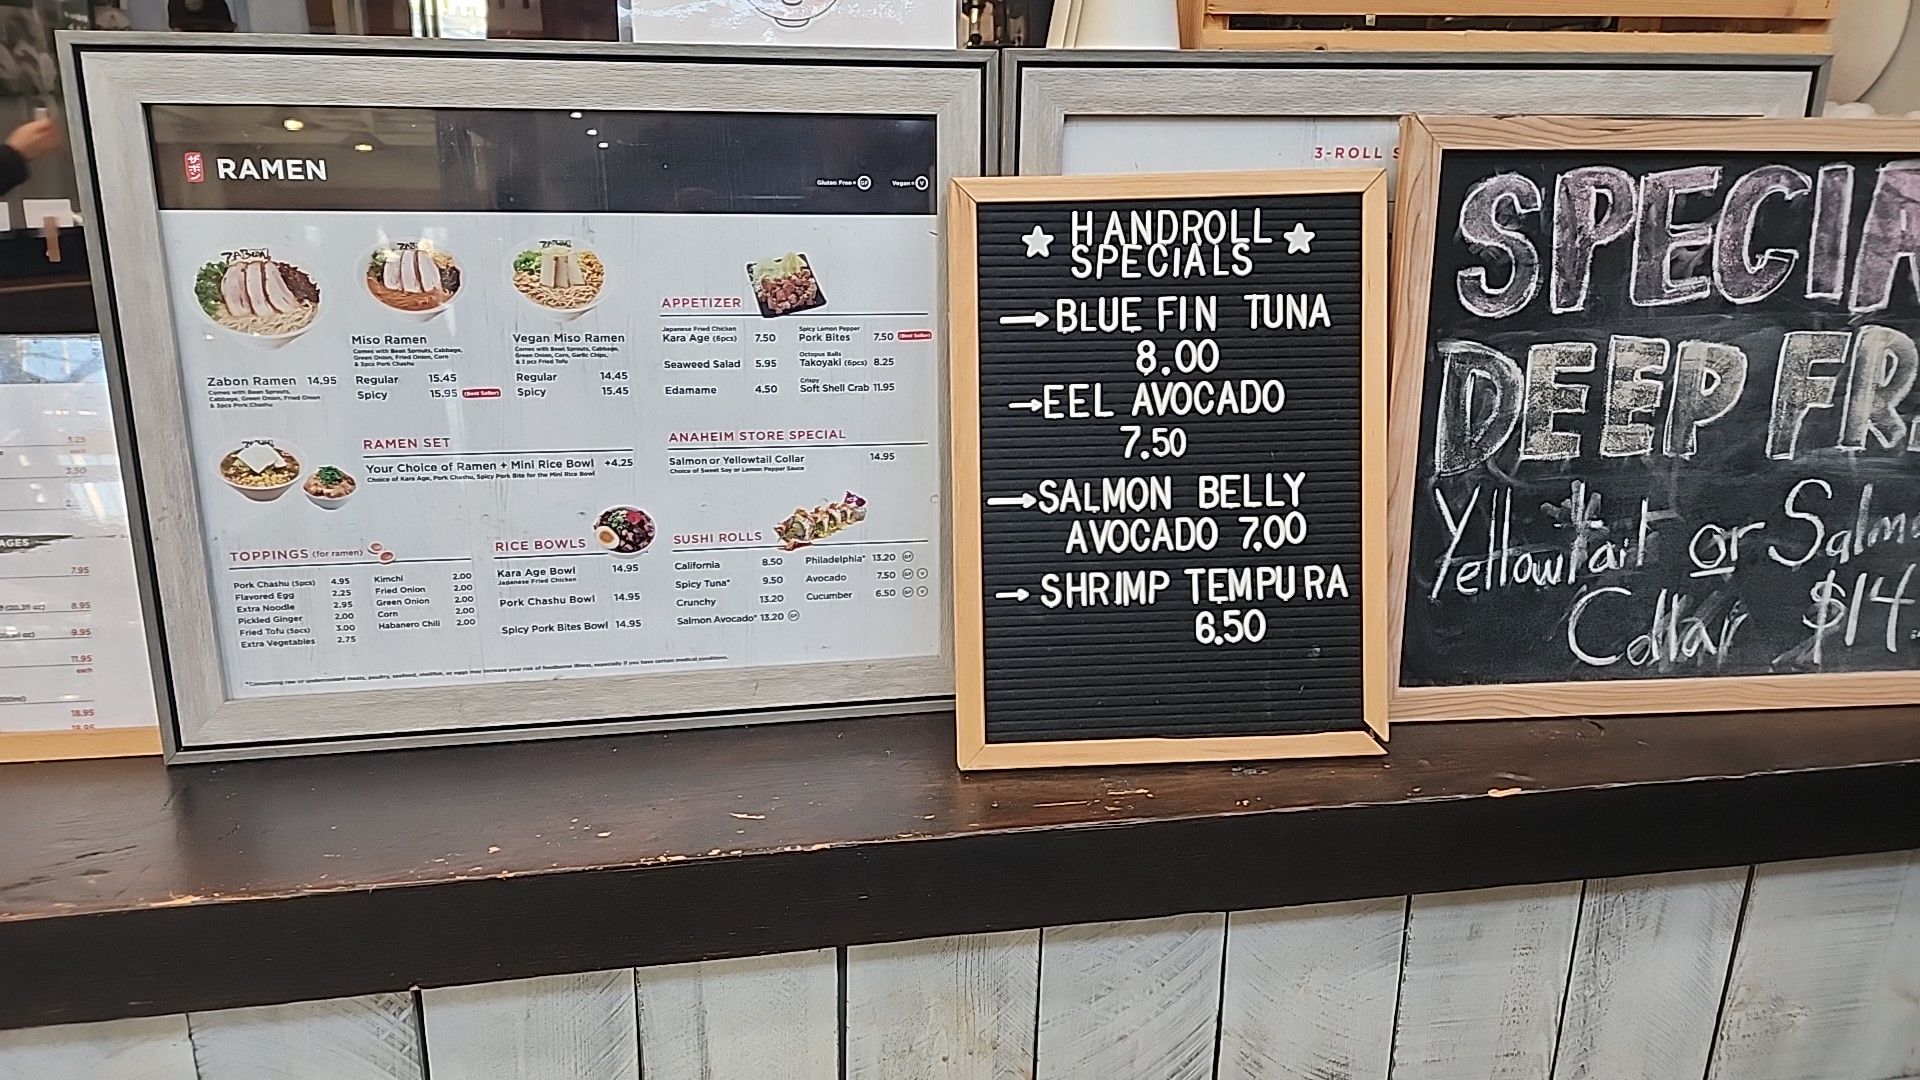 3.25
each
7.50
AGES
7.95
8.95
9.95
11.95
each
18.95
18.95
ザボン
RAMEN
Gluten Free= GF Vegan= V
ZABON
Zabon Ramen 14.95
Comes with Bean Sprouts,
Cabbage, Green Onion, Fried Onion
& 3pcs Pork Chashu
Miso Ramen
Comes with Bean Sprouts, Cabbage,
Green Onion, Fried Onion, Corn
& 3pcs Pork Chashu
Regular 15.45
Spicy 15.95 (Best Seller)
Vegan Miso Ramen
Comes with Bean Sprouts, Cabbage,
Green Onion, Corn, Garlic Chips,
& 3 pcs Fried Tofu
Regular 14.45
Spicy 15.45
APPETIZER
Japanese Fried Chicken
Kara Age (6pcs) 7.50
Seaweed Salad 5.95
Edamame 4.50
Spicy Lemon Pepper
Pork Bites 7.50 (Best Seller)
Octopus Balls
Takoyaki (6pcs) 8.25
Crispy
Soft Shell Crab 11.95
RAMEN SET
Your Choice of Ramen + Mini Rice Bowl +4.25
Choice of Kara Age, Pork Chashu, Spicy Pork Bite for the Mini Rice Bowl
ANAHEIM STORE SPECIAL
Salmon or Yellowtail Collar 14.95
Choice of Sweet Soy or Lemon Pepper Sauce
TOPPINGS (for ramen)
Pork Chashu (5pcs) 4.95
Flavored Egg 2.25
Extra Noodle 2.95
Pickled Ginger 2.00
Fried Tofu (5pcs) 3.00
Extra Vegetables 2.75
Kimchi 2.00
Fried Onion 2.00
Green Onion 2.00
Corn 2.00
Habanero Chili 2.00
RICE BOWLS
Kara Age Bowl 14.95
Japanese Fried Chicken
Pork Chashu Bowl 14.95
Spicy Pork Bites Bowl 14.95
SUSHI ROLLS
California 8.50
Spicy Tuna* 9.50
Crunchy 13.20
Salmon Avocado* 13.20 GF
Philadelphia* 13.20 GF
Avocado 7.50 GF V
Cucumber 6.50 GF V
*Consuming raw or undercooked meats, poultry, seafood, shellfish, or eggs may increase your risk of foodborne illness, especially if you have certain medical conditions.
3-ROLL S
★ HANDROLL ★
SPECIALS
→BLUE FIN TUNA
8.00
→EEL AVOCADO
7.50
→SALMON BELLY
AVOCADO 7.00
→ SHRIMP TEMPURA
6.50
SPECIA
DEEP FR
Yellowtail or Salmo
Collar $14.